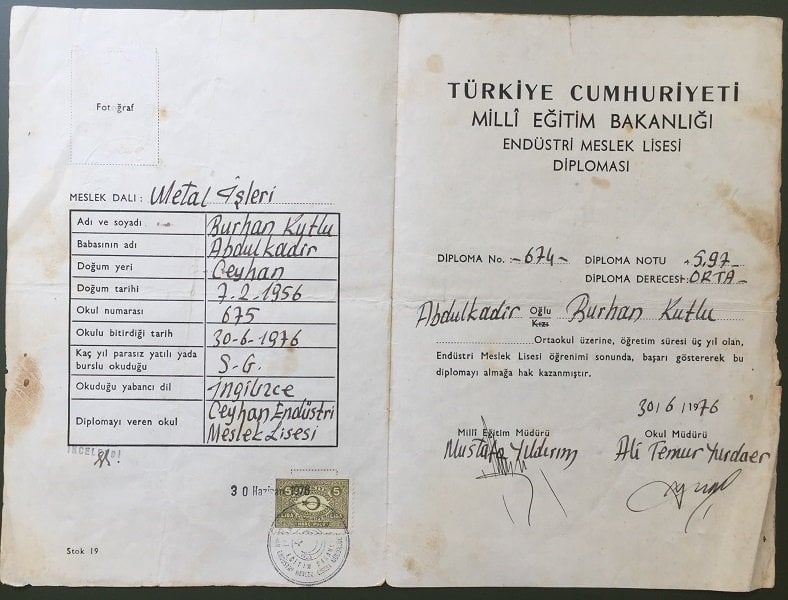 Fotoğraf
MESLEK DALI: Metal İşleri
Adı ve soyadı Burhan Kutlu
Babasının adı Abdulkadir
Doğum yeri Ceyhan
Doğum tarihi 7.2.1956
Okul numarası 675
Okulu bitirdiği tarih 30-6-1976
Kaç yıl parasız yatılı yada
burslu okuduğu S.G.
Okuduğu yabancı dil İngilizce
Diplomayı veren okul Ceyhan Endüstri
Meslek Lisesi
İNCELENDİ
30 Haziran 1976
5 5
Stok 19
TÜRKİYE CUMHURİYETİ
MİLLÎ EĞİTİM BAKANLIĞI
ENDÜSTRİ MESLEK LİSESİ
DİPLOMASI
DİPLOMA No. :-674- DİPLOMA NOTU : 5,97-
DİPLOMA DERECESİ: ORTA-
Abdulkadir Oğlu Burhan Kutlu
Kızı
Ortaokul üzerine, öğretim süresi üç yıl olan,
Endüstri Meslek Lisesi öğrenimi sonunda, başarı göstererek bu
diplomayı almağa hak kazanmıştır.
30/6/1976
Millî Eğitim Müdürü Okul Müdürü
Mustafa Yıldırım Ali Temur Yurdaer